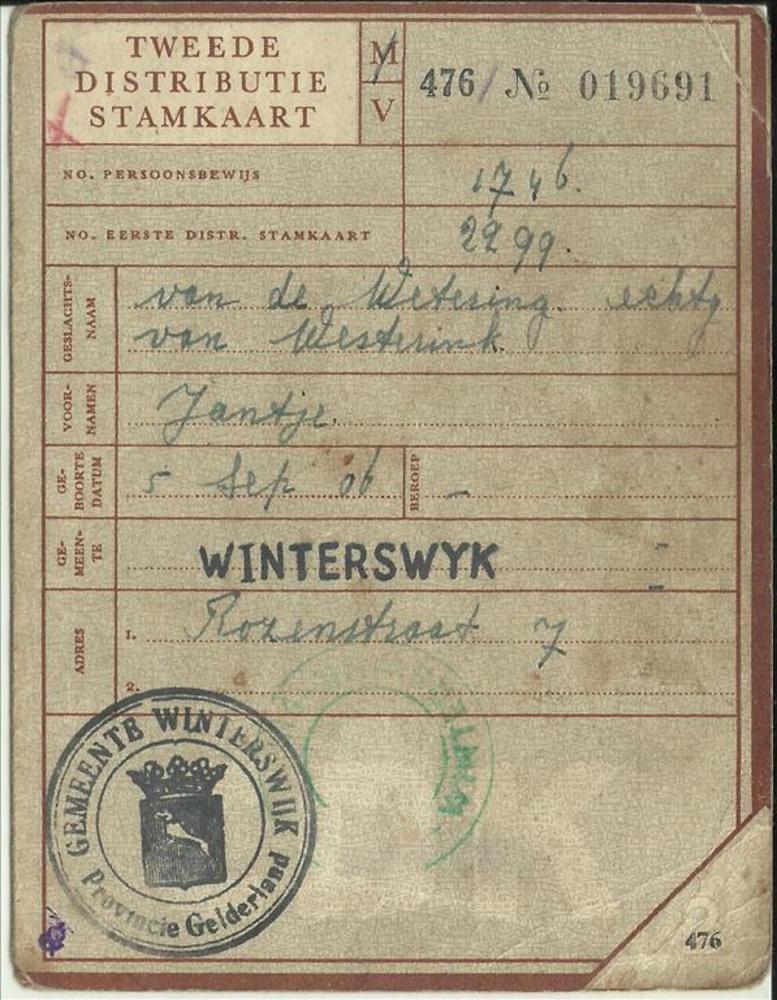 TWEEDE
DISTRIBUTIE
STAMKAART
M
V
476 / № 019691
NO. PERSOONSBEWIJS
1746.
NO. EERSTE DISTR. STAMKAART
2299.
GESLACHTS-
NAAM
van de Wetering. echtg
van Westerink
VOOR-
NAMEN
Jantje.
GE-
BOORTE
DATUM
5 Sep 06
BEROEP
–
GE-
MEEN-
TE
WINTERSWYK
ADRES
1. Rozenstraat 7
2.
GEMEENTE WINTERSWIJK
Provincie Gelderland
476